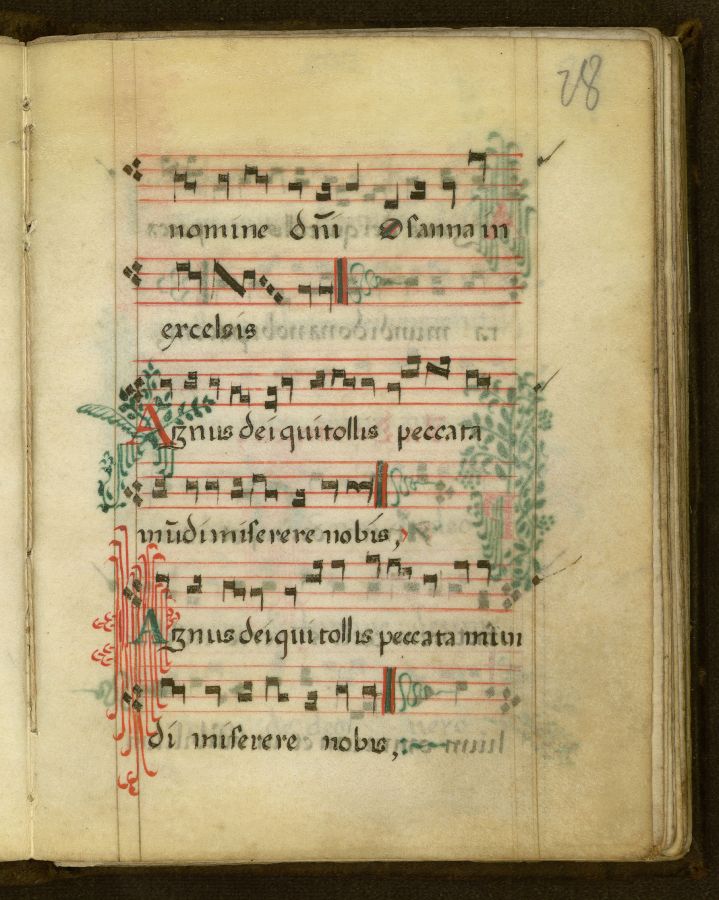 28
nomine dn̄i Osanna in
excelsis
Agnus dei qui tollis peccata
mūdi miserere nobis,
Agnus dei qui tollis peccata mun
di miserere nobis,